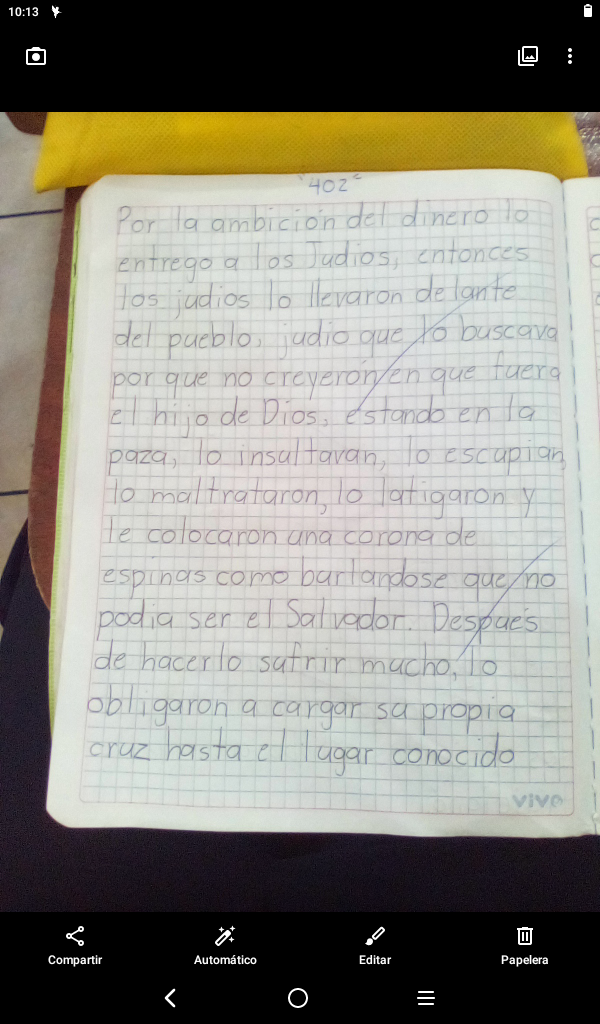 10:13
"402"
Por la ambición del dinero lo
entrego a los Judios, entonces
los judios lo llevaron delante
del pueblo, judio que lo buscava
por que no creyeron en que fuera
el hijo de Dios, estando en la
paza, lo insultavan, lo escupian
lo maltrataron, lo latigaron y
le colocaron una corona de
espinas como burlandose que no
podia ser el Salvador. Después
de hacerlo sufrir mucho, lo
obligaron a cargar su propia
cruz hasta el lugar conocido
vivo
Compartir
Automático
Editar
Papelera